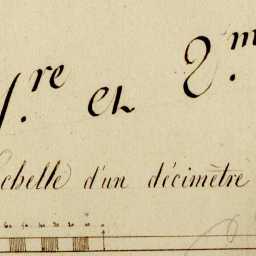 1.re et 2.m
échelle d'un décimètre